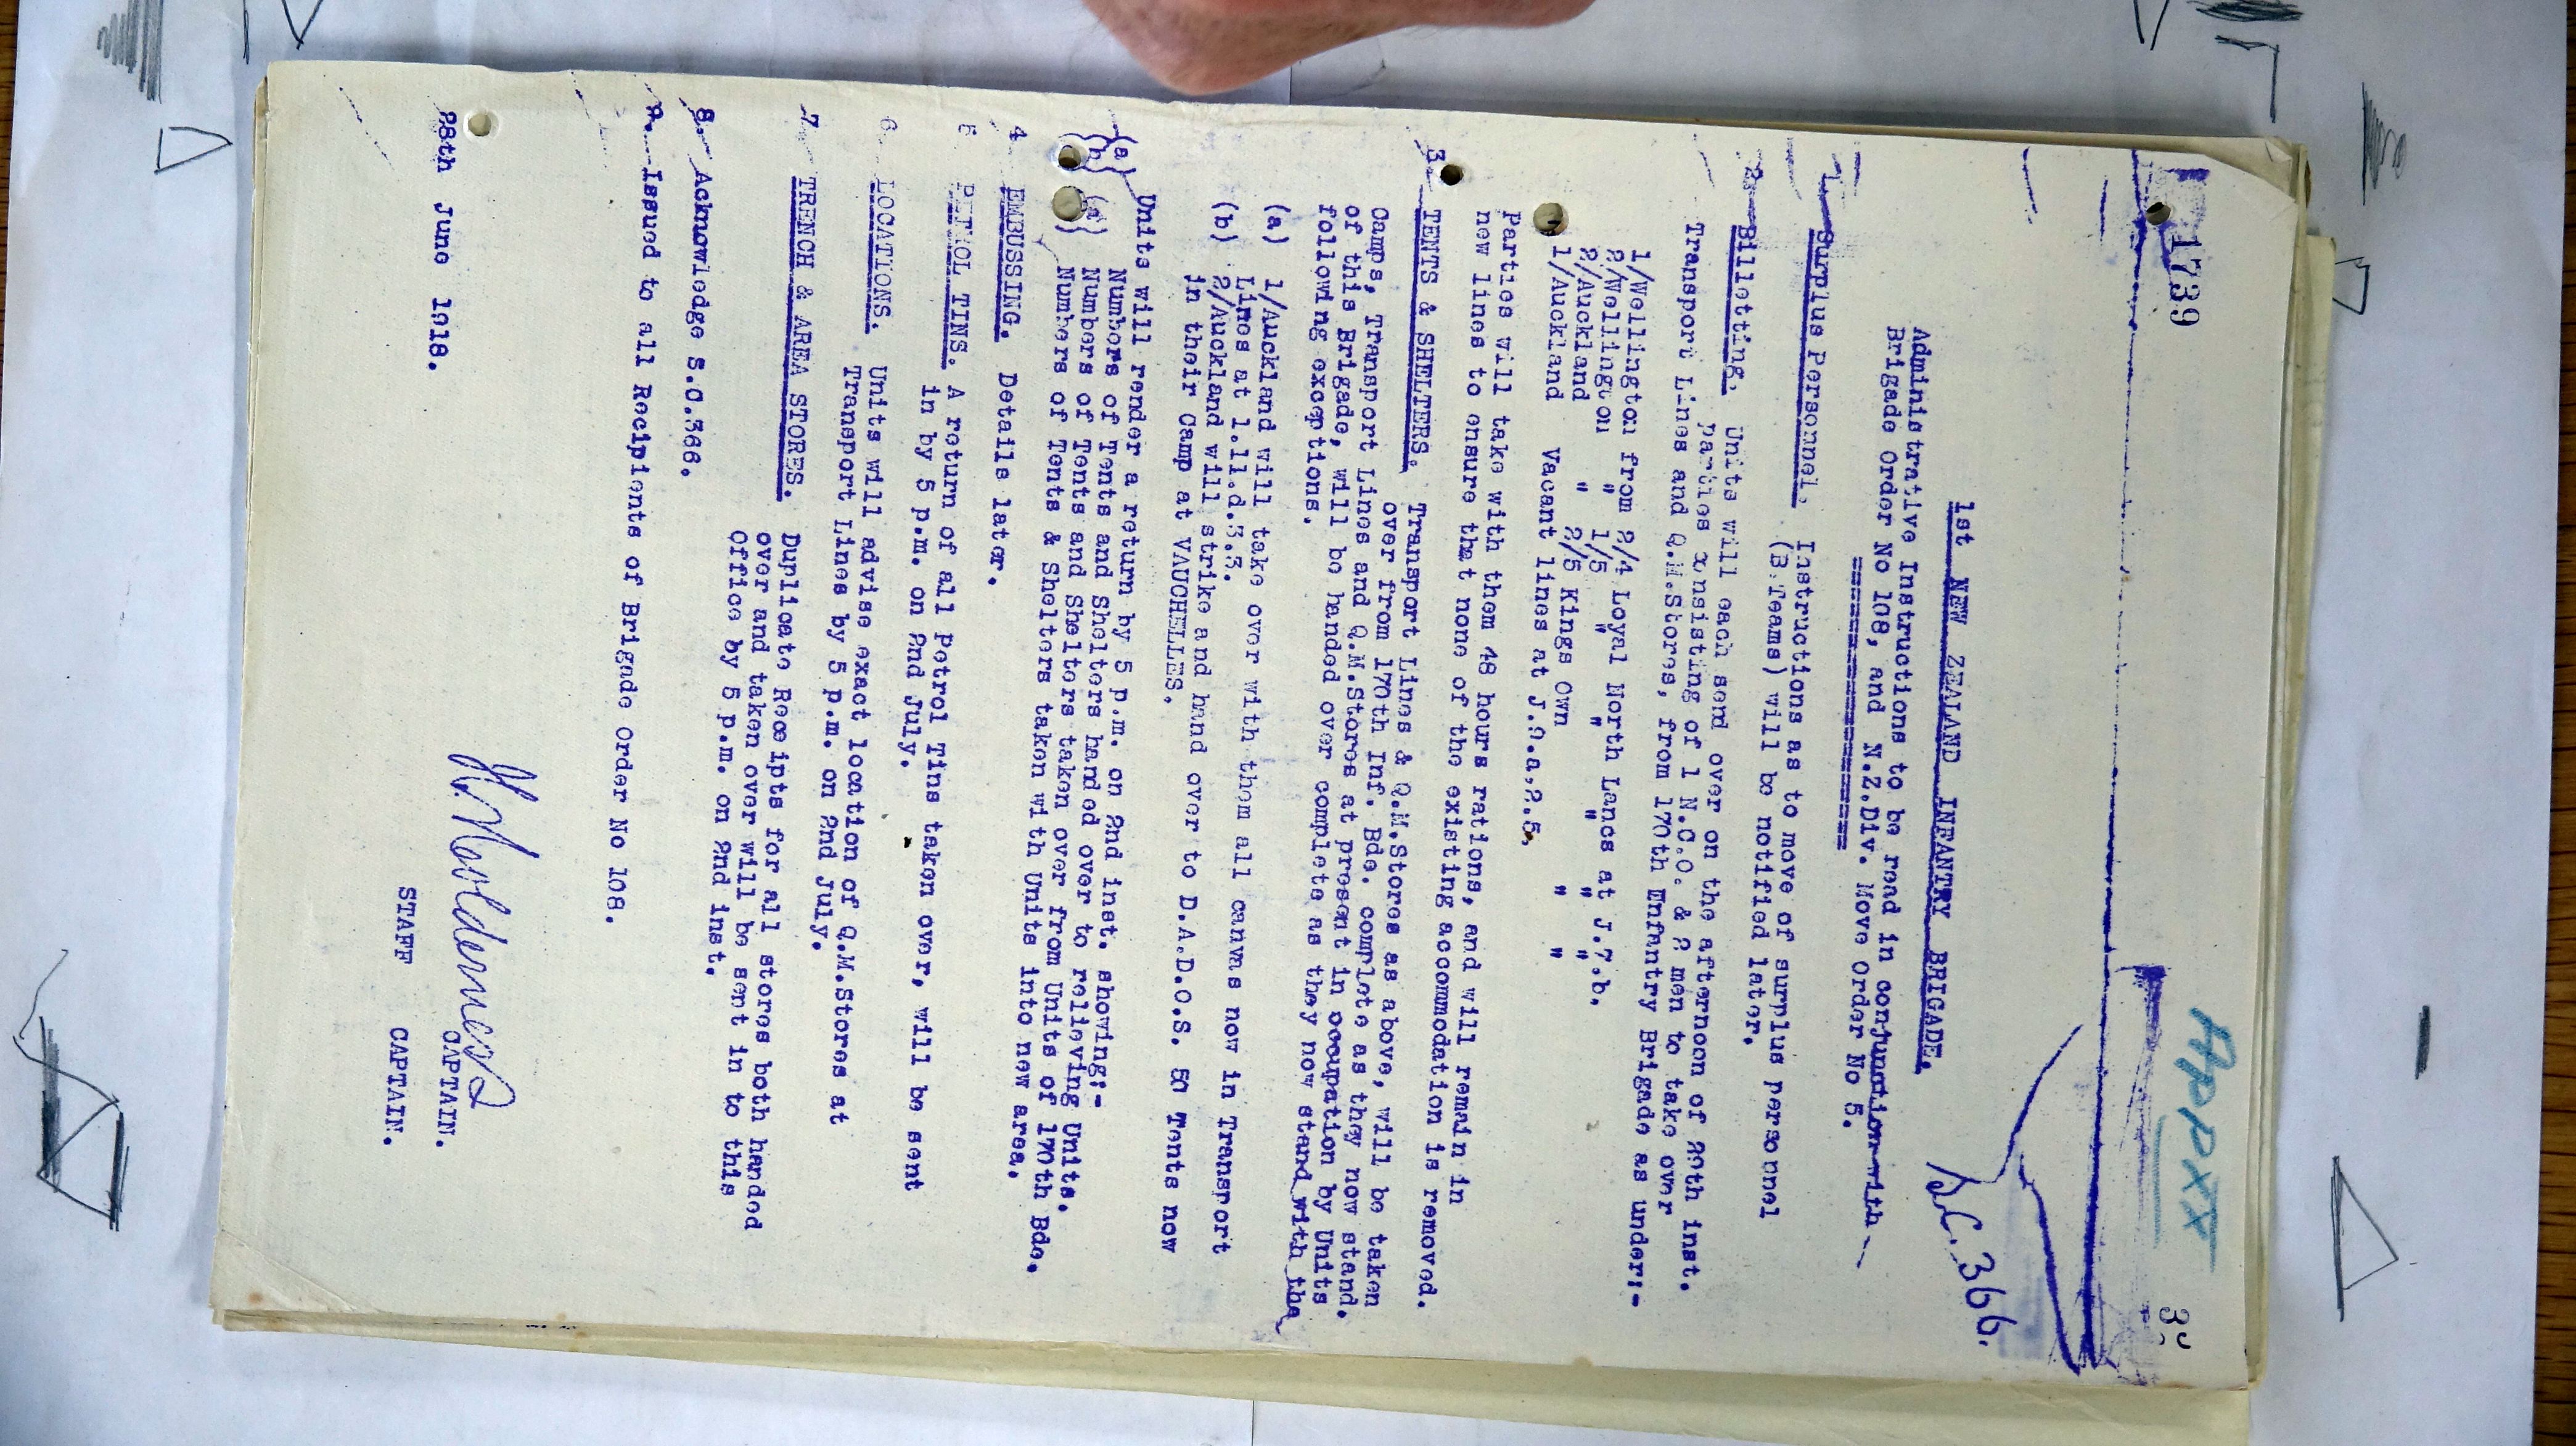 1739
Appxx
S.C.366.
1st NEW ZEALAND INFANTRY BRIGADE.
Administrative Instructions to be read in conjunction with
Brigade Order No 108, and N.Z.Div. Move Order No 5.
==================
1. Surplus Personnel. Instructions as to move of surplus personnel
(B.Teams) will be notified later.
2. Billetting. Units will each send over on the afternoon of 29th inst.
parties consisting of 1 N.C.O. & 2 men to take over
Transport Lines and Q.M.Stores, from 170th Infantry Brigade as under:-
1/Wellington from 2/4 Loyal North Lancs at J.7.b.
2/Wellington " 1/5 " " " " "
2/Auckland " 2/5 Kings Own " "
1/Auckland Vacant lines at J.9.a.2.5.
Parties will take with them 48 hours rations, and will remain in
new lines to ensure that none of the existing accommodation is removed.
3. TENTS & SHELTERS. Transport Lines & Q.M.Stores as above, will be taken
over from 170th Inf. Bde. complete as they now stand.
Camps, Transport Lines and Q.M.Stores at present in occupation by Units
of this Brigade, will be handed over complete as they now stand with the
following exceptions.
(a) 1/Auckland will take over with them all canvas now in Transport
Lines at 1.11.d.3.3.
(b) 2/Auckland will strike and hand over to D.A.D.O.S. 50 Tents now
in their Camp at VAUCHELLES.
Units will render a return by 5 p.m. on 2nd inst. showing:-
(a) Numbers of Tents and Shelters handed over to relieving Units.
(b) Numbers of Tents and Shelters taken over from Units of 170th Bde.
(c) Numbers of Tents & Shelters taken with Units into new area.
4 EMBUSSING. Details later.
5 PETROL TINS. A return of all Petrol Tins taken over, will be sent
in by 5 p.m. on 2nd July.
6 LOCATIONS. Units will advise exact location of Q.M.Stores at
Transport Lines by 5 p.m. on 2nd July.
7 TRENCH & AREA STORES. Duplicate Receipts for all stores both handed
over and taken over will be sent in to this
Office by 5 p.m. on 2nd inst.
8. Acknowledge S.C.366.
9. Issued to all Recipients of Brigade Order No 108.
CAPTAIN.
28th June 1918.
STAFF CAPTAIN.